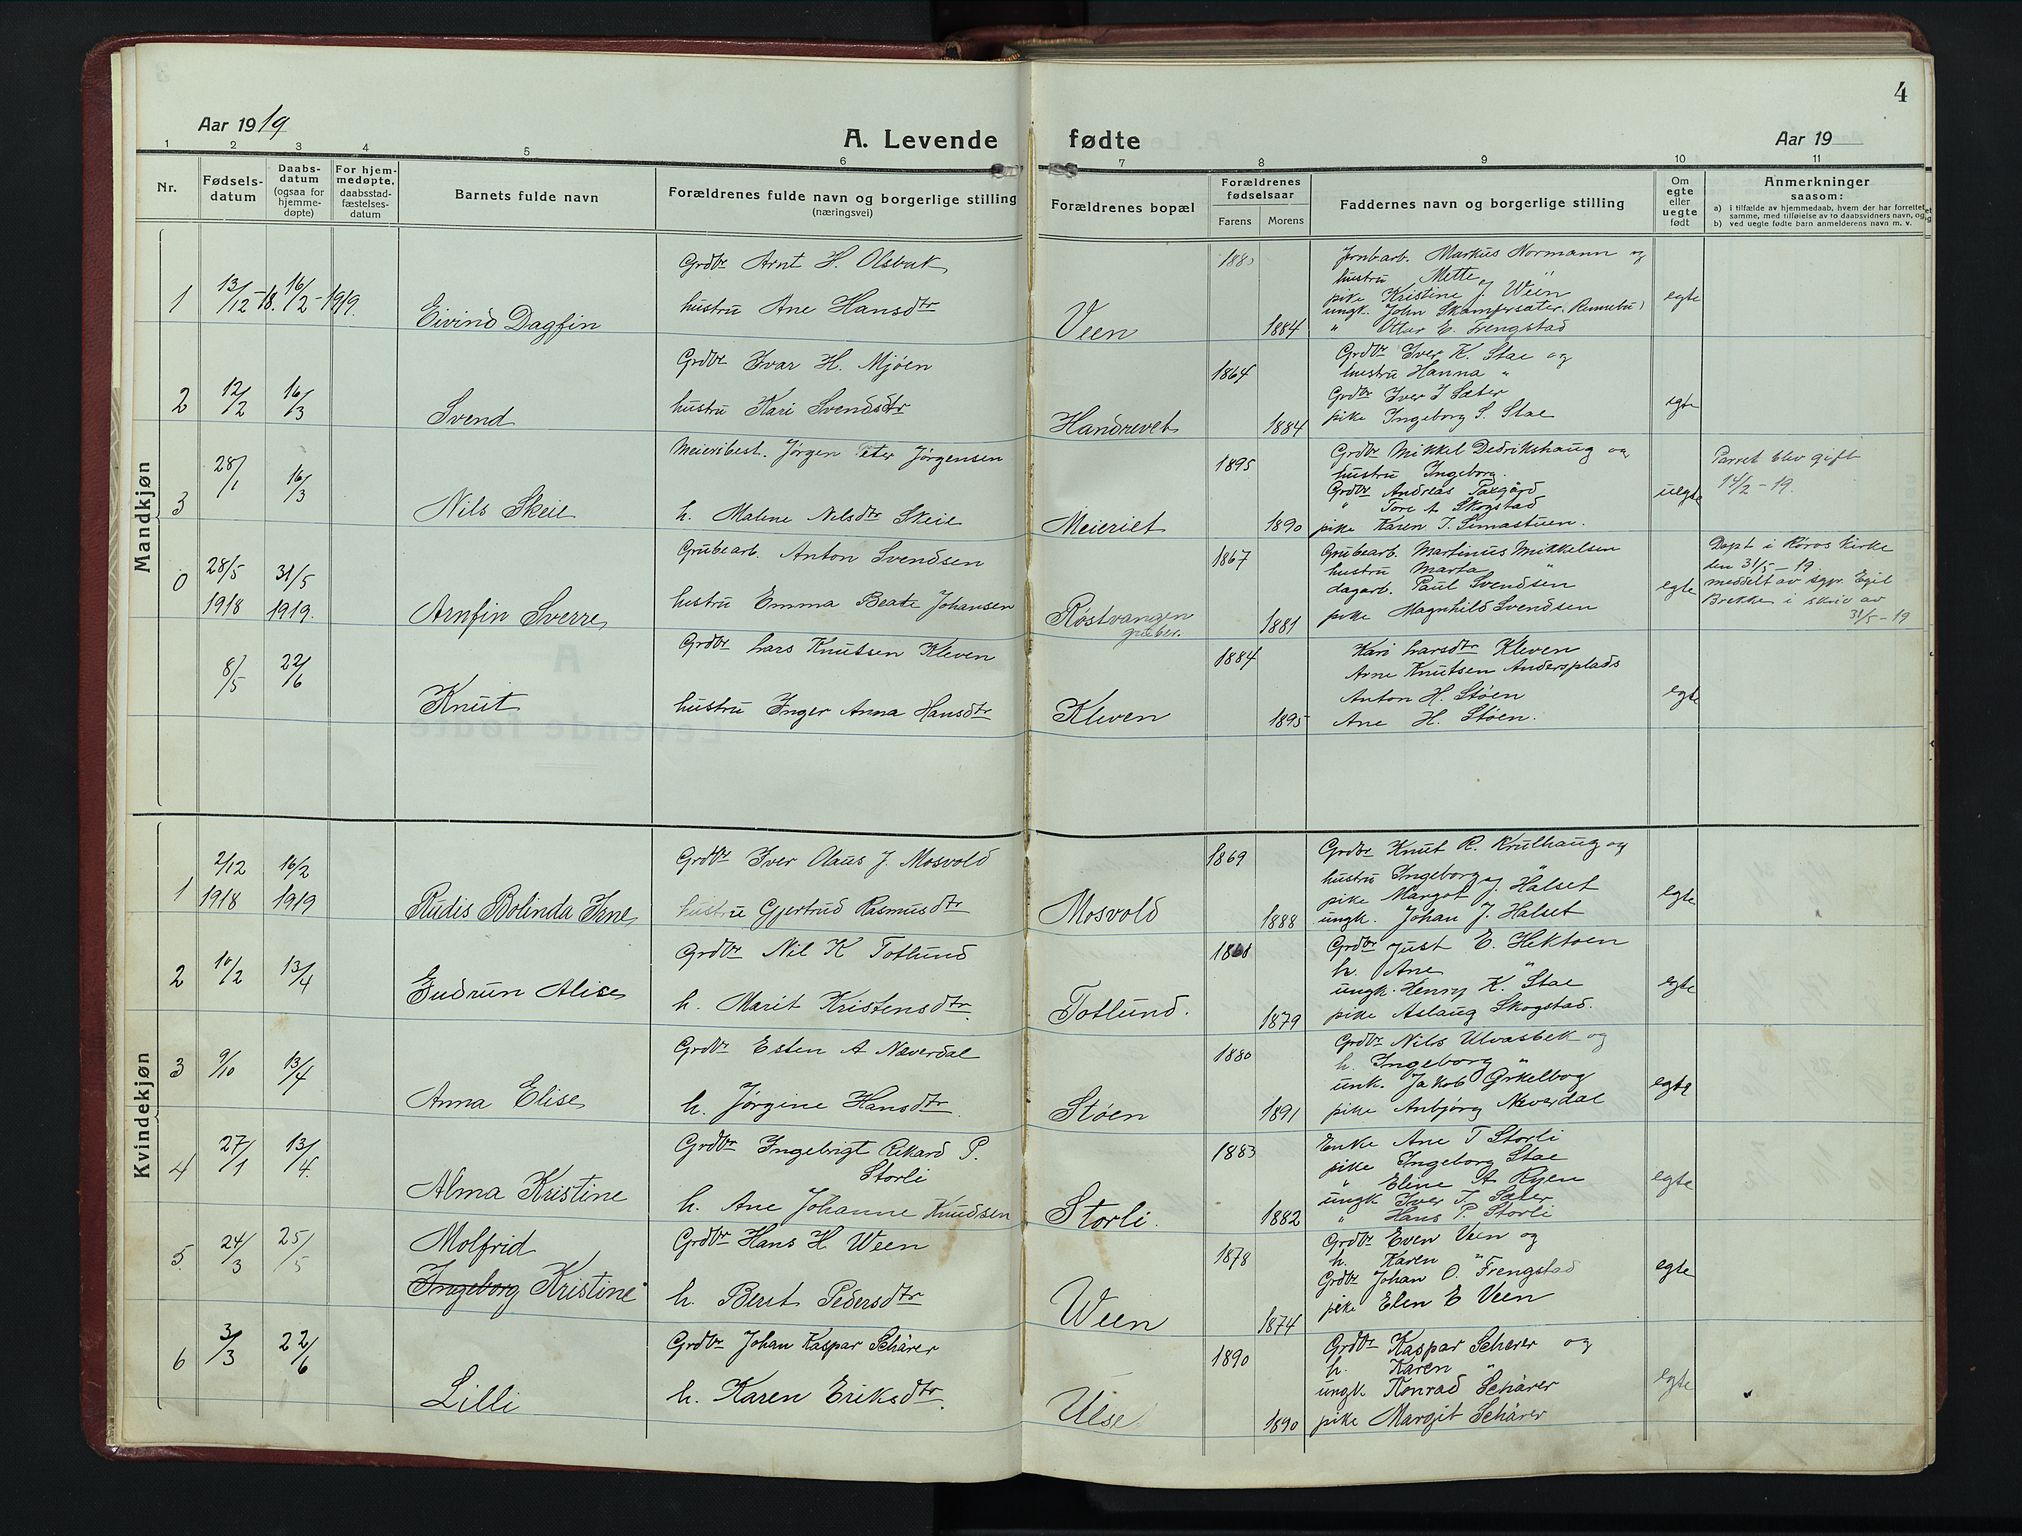 4
Aar 1919
A. Levende fødte
Aar 19
1 2 3 4 5 6 7 8 9 10 11
Nr.
Fødsels-
datum
Daabs-
datum
(ogsaa for
hjemme-
døpte)
For hjem-
medøpte,
daabsstad-
fæstelses-
datum
Barnets fulde navn
Forældrenes fulde navn og borgerlige stilling
(næringsvei)
Forældrenes bopæl
Forældrenes
fødselsaar
Farens
Morens
Faddernes navn og borgerlige stilling
Om
egte
eller
uegte
født
Anmerkninger
saasom:
a) i tilfælde av hjemmedaab, hvem der har forrettet
samme, med tilføielse av to daabsvidners navn, og
b) ved uegte fødte barn anmelderens navn m. v.
Mandkjøn
1
13/12-18.
16/2-1919.
Eivind Dagfin
Grdbr Arnt H. Olsbak
hustru Ane Hansdtr
Veen
1884
Jernbarb. Markus Normann og
hustru Mette "
pike Kristine J. Wein
ungk. John Skamfersæter (Rennebu)
" Olur E. Frengstad
egte
2
12/2
16/3
Svend
Grdbr Ivar H. Mjøen
hustru Kari Svendsdtr
Handrevet
1864
1884
Grdbr Iver K. Stae og
hustru Hanna "
Grdbr Iver I Sæter
pike Ingeborg S. Stae
egte
3
28/1
16/3
Nils Skeie
Meieribest. Jørgen Peter Jørgensen
h. Malene Nilsdtr Skeie
Meieriet
1895
1890
Grdbr Mikkel Dedrikshaug og
hustru Ingeborg.
Grdbr Andreas Taxgård
" Tore A Skogstad
pike Karen T. Simastuen.
uegte
Parret blev gift
14/2-19.
0
28/5
1918
31/5
1919.
Arnfin Sverre
Grubearb. Anton Svendsen
hustru Emma Beate Johansen
Røstvangen
gruber.
1867
1881
Grubearb. Martinus Mikkelsen
hustru Marta "
dagarb. Paul Svendsen
pike Magnhild Svendsen
egte
Døpt i Røros Kirke
den 31/5-19.
meddelt av sgpr. Egil
Brekke i skriv av
31/5-19
8/5
22/6
Knut
Grdbr Lars Knutsen Kleven
hustru Inger Anna Hansdtr
Kleven
1884
1895
Kari Larsdtr Kleven
Arne Knutsen Andersplads
Anton H. Støen
Ane H. Støen.
egte
Kvindekjøn
1
2/12
1918
16/2
1919
Rudis Bolinda Irne
Grdbr Iver Olaus J. Mosvold
hustru Gjertrud Rasmusdtr
Mosvold
1869
1888
Grdbr Knut R. Krulhaug og
hustru Ingeborg "
pike Margot J. Halset
ungk. Johan J. Halset
egte
2
16/2
13/4
Gudrun Alise
Grdbr Nil K Totlund
h. Marit Kristensdtr.
Totlund.
1879
Grdbr Just E. Hektoen
h. Ane "
ungk. Henry K. Stae
pike Aslaug Skogstad.
egte
3
9/10
13/4
Anna Elise
Grdbr Esten A Næverdal
h. Jørgine Hansdtr.
Støen
1880
1891
Grdbr Nils Ulvasbek og
h. Ingeborg "
unk. Jakob Grkelbog
pike Anbjørg Næverdal
egte
4
27/1
13/4.
Alma Kristine
Grdbr Ingebrigt Rikard P.
Storli
h. Ane Johanne Knudsen
Storli.
1883
1882
Enke Ane T Storli
pike Ingeborg Stae
" Eline A Ryen
ungk Iver T. Sæter
" Hans P. Storli
egte
5.
24/3
25/5
Molfrid
Ingeborg Kristine
Grdbr Hans H Ween
h. Berit Pedersdtr
Ween
1878
1874
Grdbr Even Veen og
h. Karen "
Grdbr Johan O. Frengstad
pike Elen E Veen
egte
6
3/3
22/6
Lilli
Grdbr Johan Kaspar Schårer
h. Karen Eriksdtr.
Ulse
1890
1890
Grdbr Kaspar Scherer og
h. Karen "
ungk. Konrad Schårer
pike Margit Schårer
egte